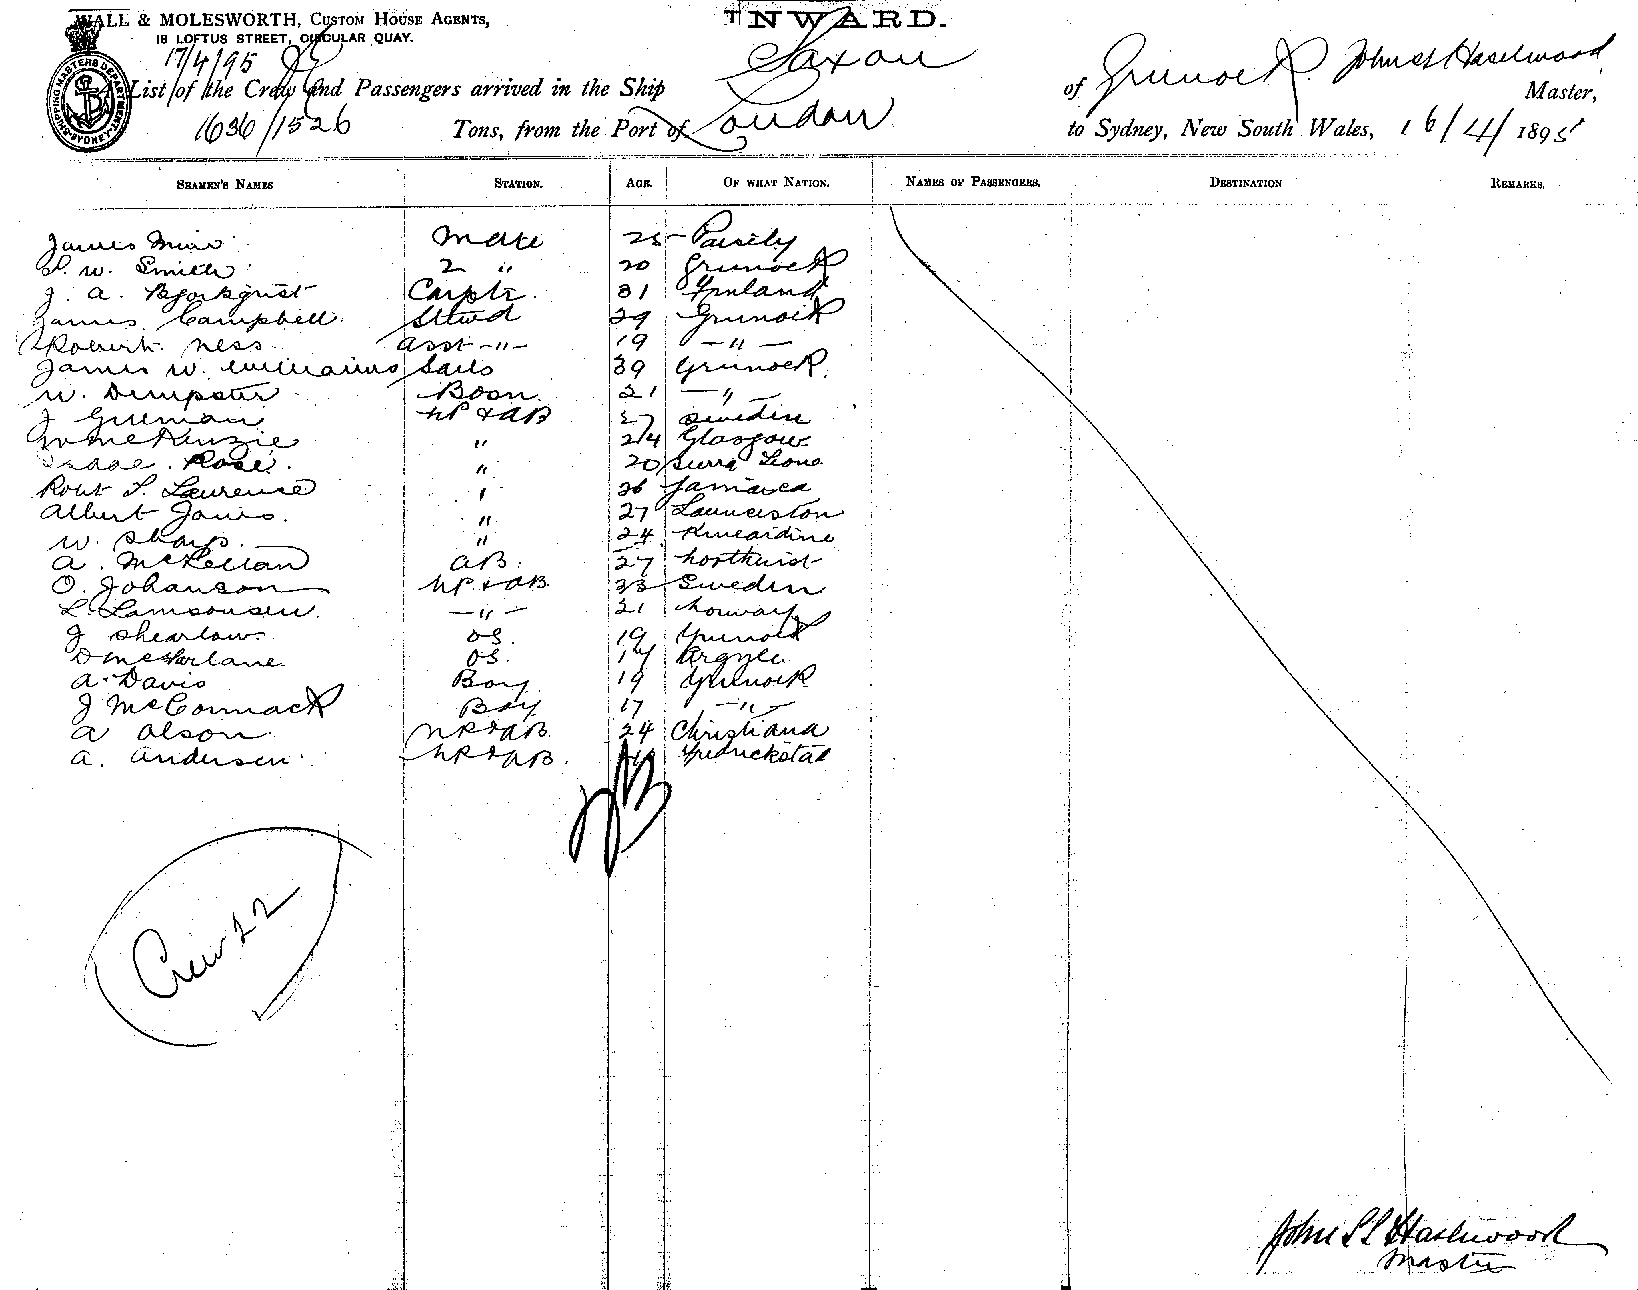 WALL & MOLESWORTH, CUSTOM HOUSE AGENTS,
18 LOFTUS STREET, CIRCULAR QUAY.
INWARD.
17/4/95
SHIPPING MASTERS DEPARTMENT SYDNEY
List of the Crew and Passengers arrived in the Ship Saxon of Greenock John Haselwood Master,
1636/1526 Tons, from the Port of London to Sydney, New South Wales, 16/4/1895
SEAMEN'S NAMES STATION. AGE. OF WHAT NATION. NAMES OF PASSENGERS. DESTINATION REMARKS.
James Mate 25 Paisely
W. Smith 2 " 20 Greenock
J. A. Bjorkqvist Carptr. 31 Finland
James Campbell Stewd 29 Greenock
Robert Ness Asst - " - 19 - " -
James W. Williams Sails 39 Greenock
W. Dempster Bosn 21 - " -
J AB 27 Sweden
McKenzie " 24 Glasgow
Isaac Rose. " 20 Sierra Leone
Robt Laurence " 36 Jamaica
Albert Jones. " 27 Launceston
W. Sharp. " 24 Kincardine
A. McKellan AB. 27
O. Johanson & AB 33 Sweden
L. - " - 21 Norway
J Shearlaw OS. 19 Greenock
D McFarlane OS. Argyle
A. Davis Boy 19 Greenock
J McCormack Boy 17 - " -
A Olson & AB 24 Christiana
A. Andersen & AB. Fredrickstad
Crew 22
John Haselwood
Master